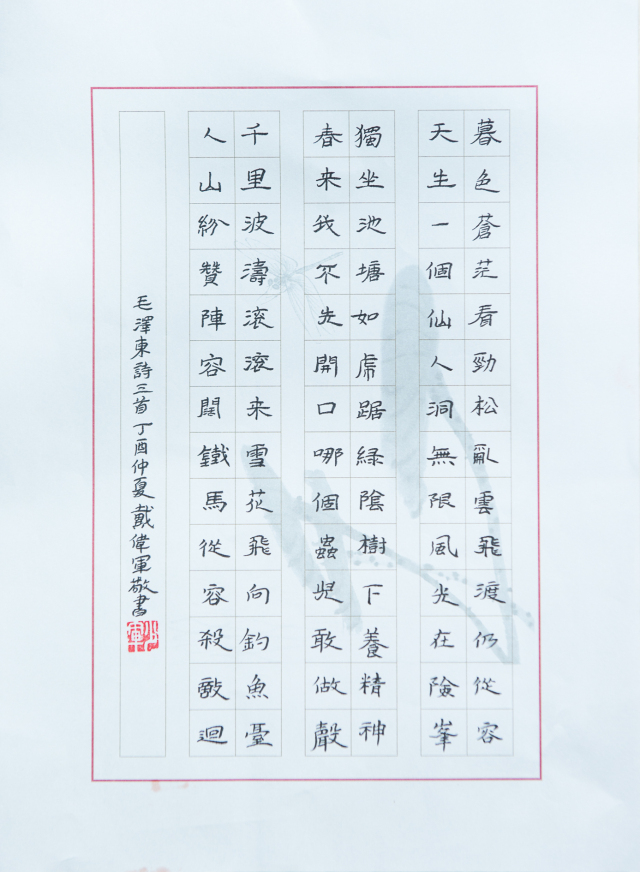 暮色蒼茫看勁松亂雲飛渡仍從容
天生一個仙人洞無限風光在險峯
獨坐池塘如虎踞緑陰樹下養精神
春来我不先開口哪個蟲兒敢做聲
千里波濤滚滚来雪花飛向釣魚臺
人山紛贊陣容闊鐵馬從容殺敵迴
毛澤東詩三首丁酉仲夏戴偉軍敬書